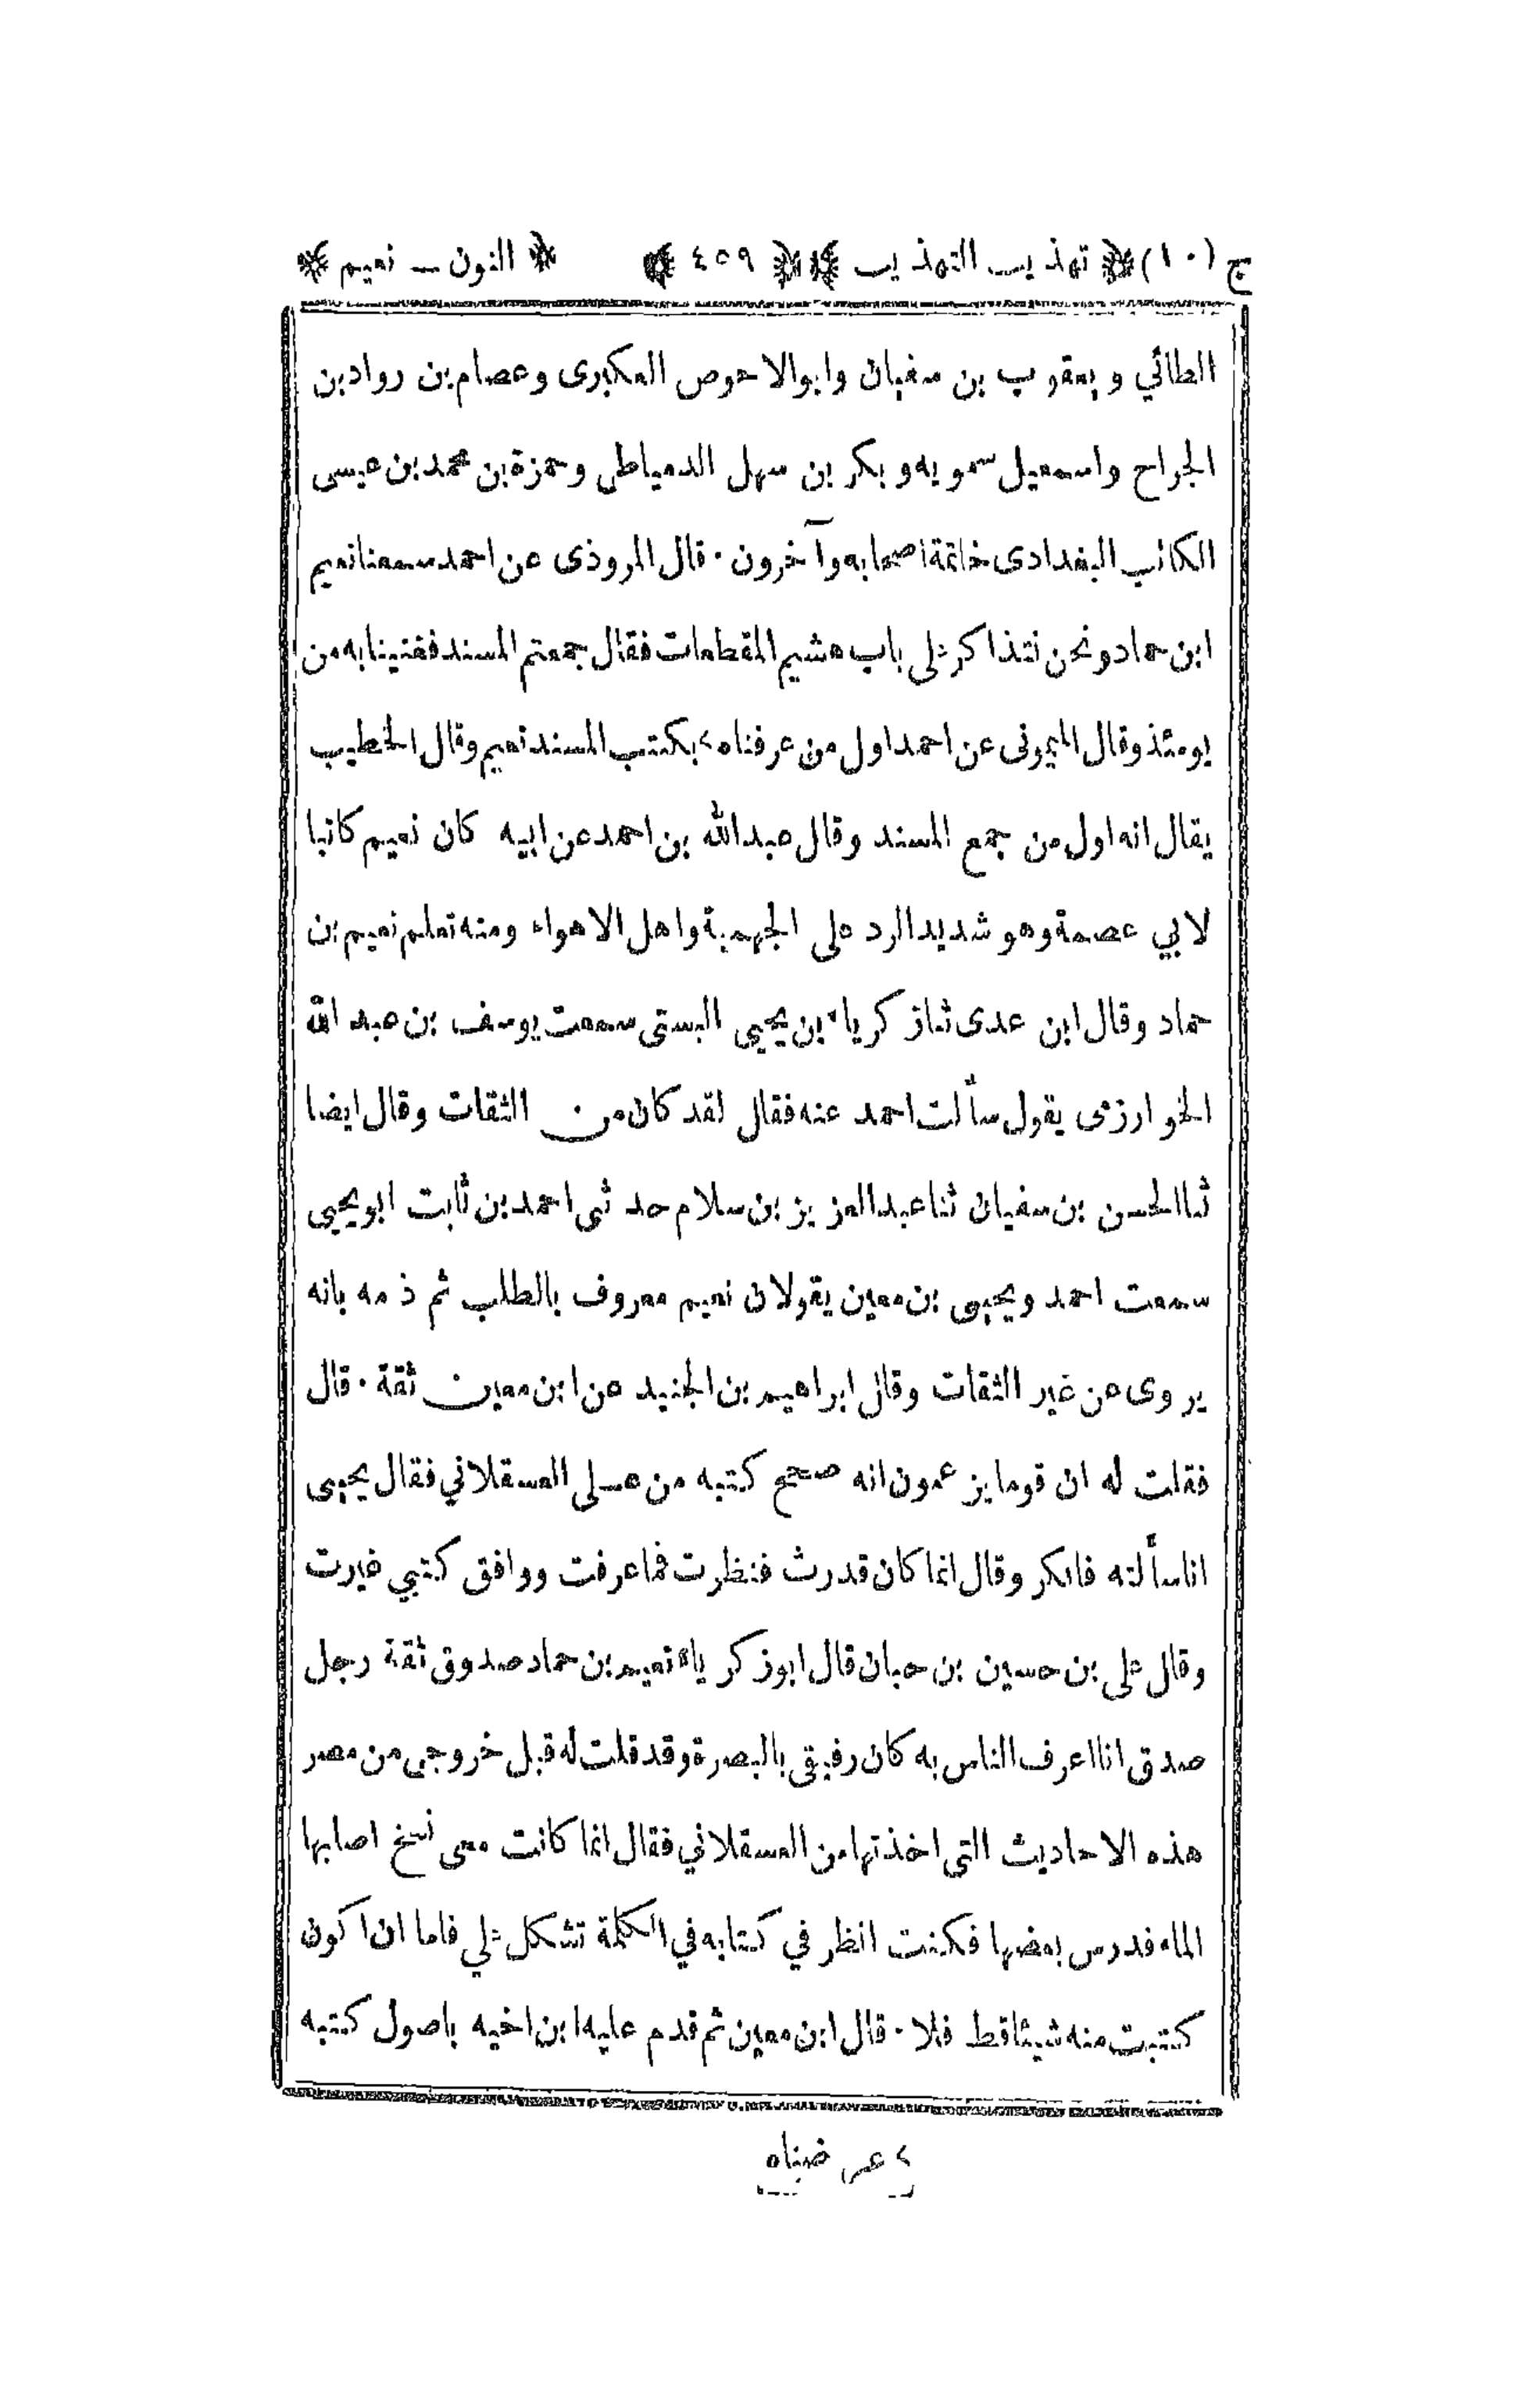 ج (١٠) ﴿ تهذيب التهذيب ﴾ ﴿ ٤٥٩ ﴾ ﴿ النون – نعيم ﴾
الطائي ويعقوب بن سفيان وابوالاحوص العكبرى وعصام بن رواد بن
الجراح واسمعيل سمويه وبكر بن سهل الدمياطى وحمزة بن محمد بن عيسى
الكاتب البغدادى خاتمة اصحابه وآخرون . قال المروذى عن احمد سمعنا نعيم
ابن حماد ونحن نتذاكر على باب هشيم المقطعات فقال جمعتم المسند فعنينا به من
يومئذ وقال الميمونى عن احمد اول من عرفناه ٢ بكتب المسند نعيم وقال الخطيب
يقال انه اول من جمع المسند وقال عبدالله بن احمد عن ابيه كان نعيم كاتبا
لابي عصمة وهو شديد الرد على الجهمية واهل الاهواء ومنه تعلم نعيم بن
حماد وقال ابن عدى ثنا زكرياء بن يحيى البستى سمعت يوسف بن عبد الله
الخوارزمى يقول سألت احمد عنه فقال لقد كان من الثقات وقال ايضا
ثنا الحسن بن سفيان ثنا عبد العزيز بن سلام حدثنى احمد بن ثابت ابو يحيى
سمعت احمد ويحيى بن معين يقولان نعيم معروف بالطلب ثم ذمه بانه
يروى عن غير الثقات وقال ابراهيم بن الجنيد عن ابن معين ثقة . قال
فقلت له ان قوما يزعمون انه صحح كتبه من على العسقلاني فقال يحيى
انا سألته فانكر وقال انما كان قد رث فنظرت فما عرفت ووافق كتبي غيرت
وقال على بن حسين بن حبان قال ابو زكرياء نعيم بن حماد صدوق ثقة رجل
صدق انا اعرف الناس به كان رفيقى بالبصرة وقد قلت له قبل خروجى من مصر
هذه الاحاديث التى اخذتها من العسقلاني فقال انما كانت معى نسخ اصابها
الماء فدرس بعضها فكنت انظر في كتابه في الكلمة تشكل علي فاما ان اكون
كتبت منه شيئا قط فلا . قال ابن معين ثم قدم عليه ابن اخيه باصول كتبه
٢ عرضناه